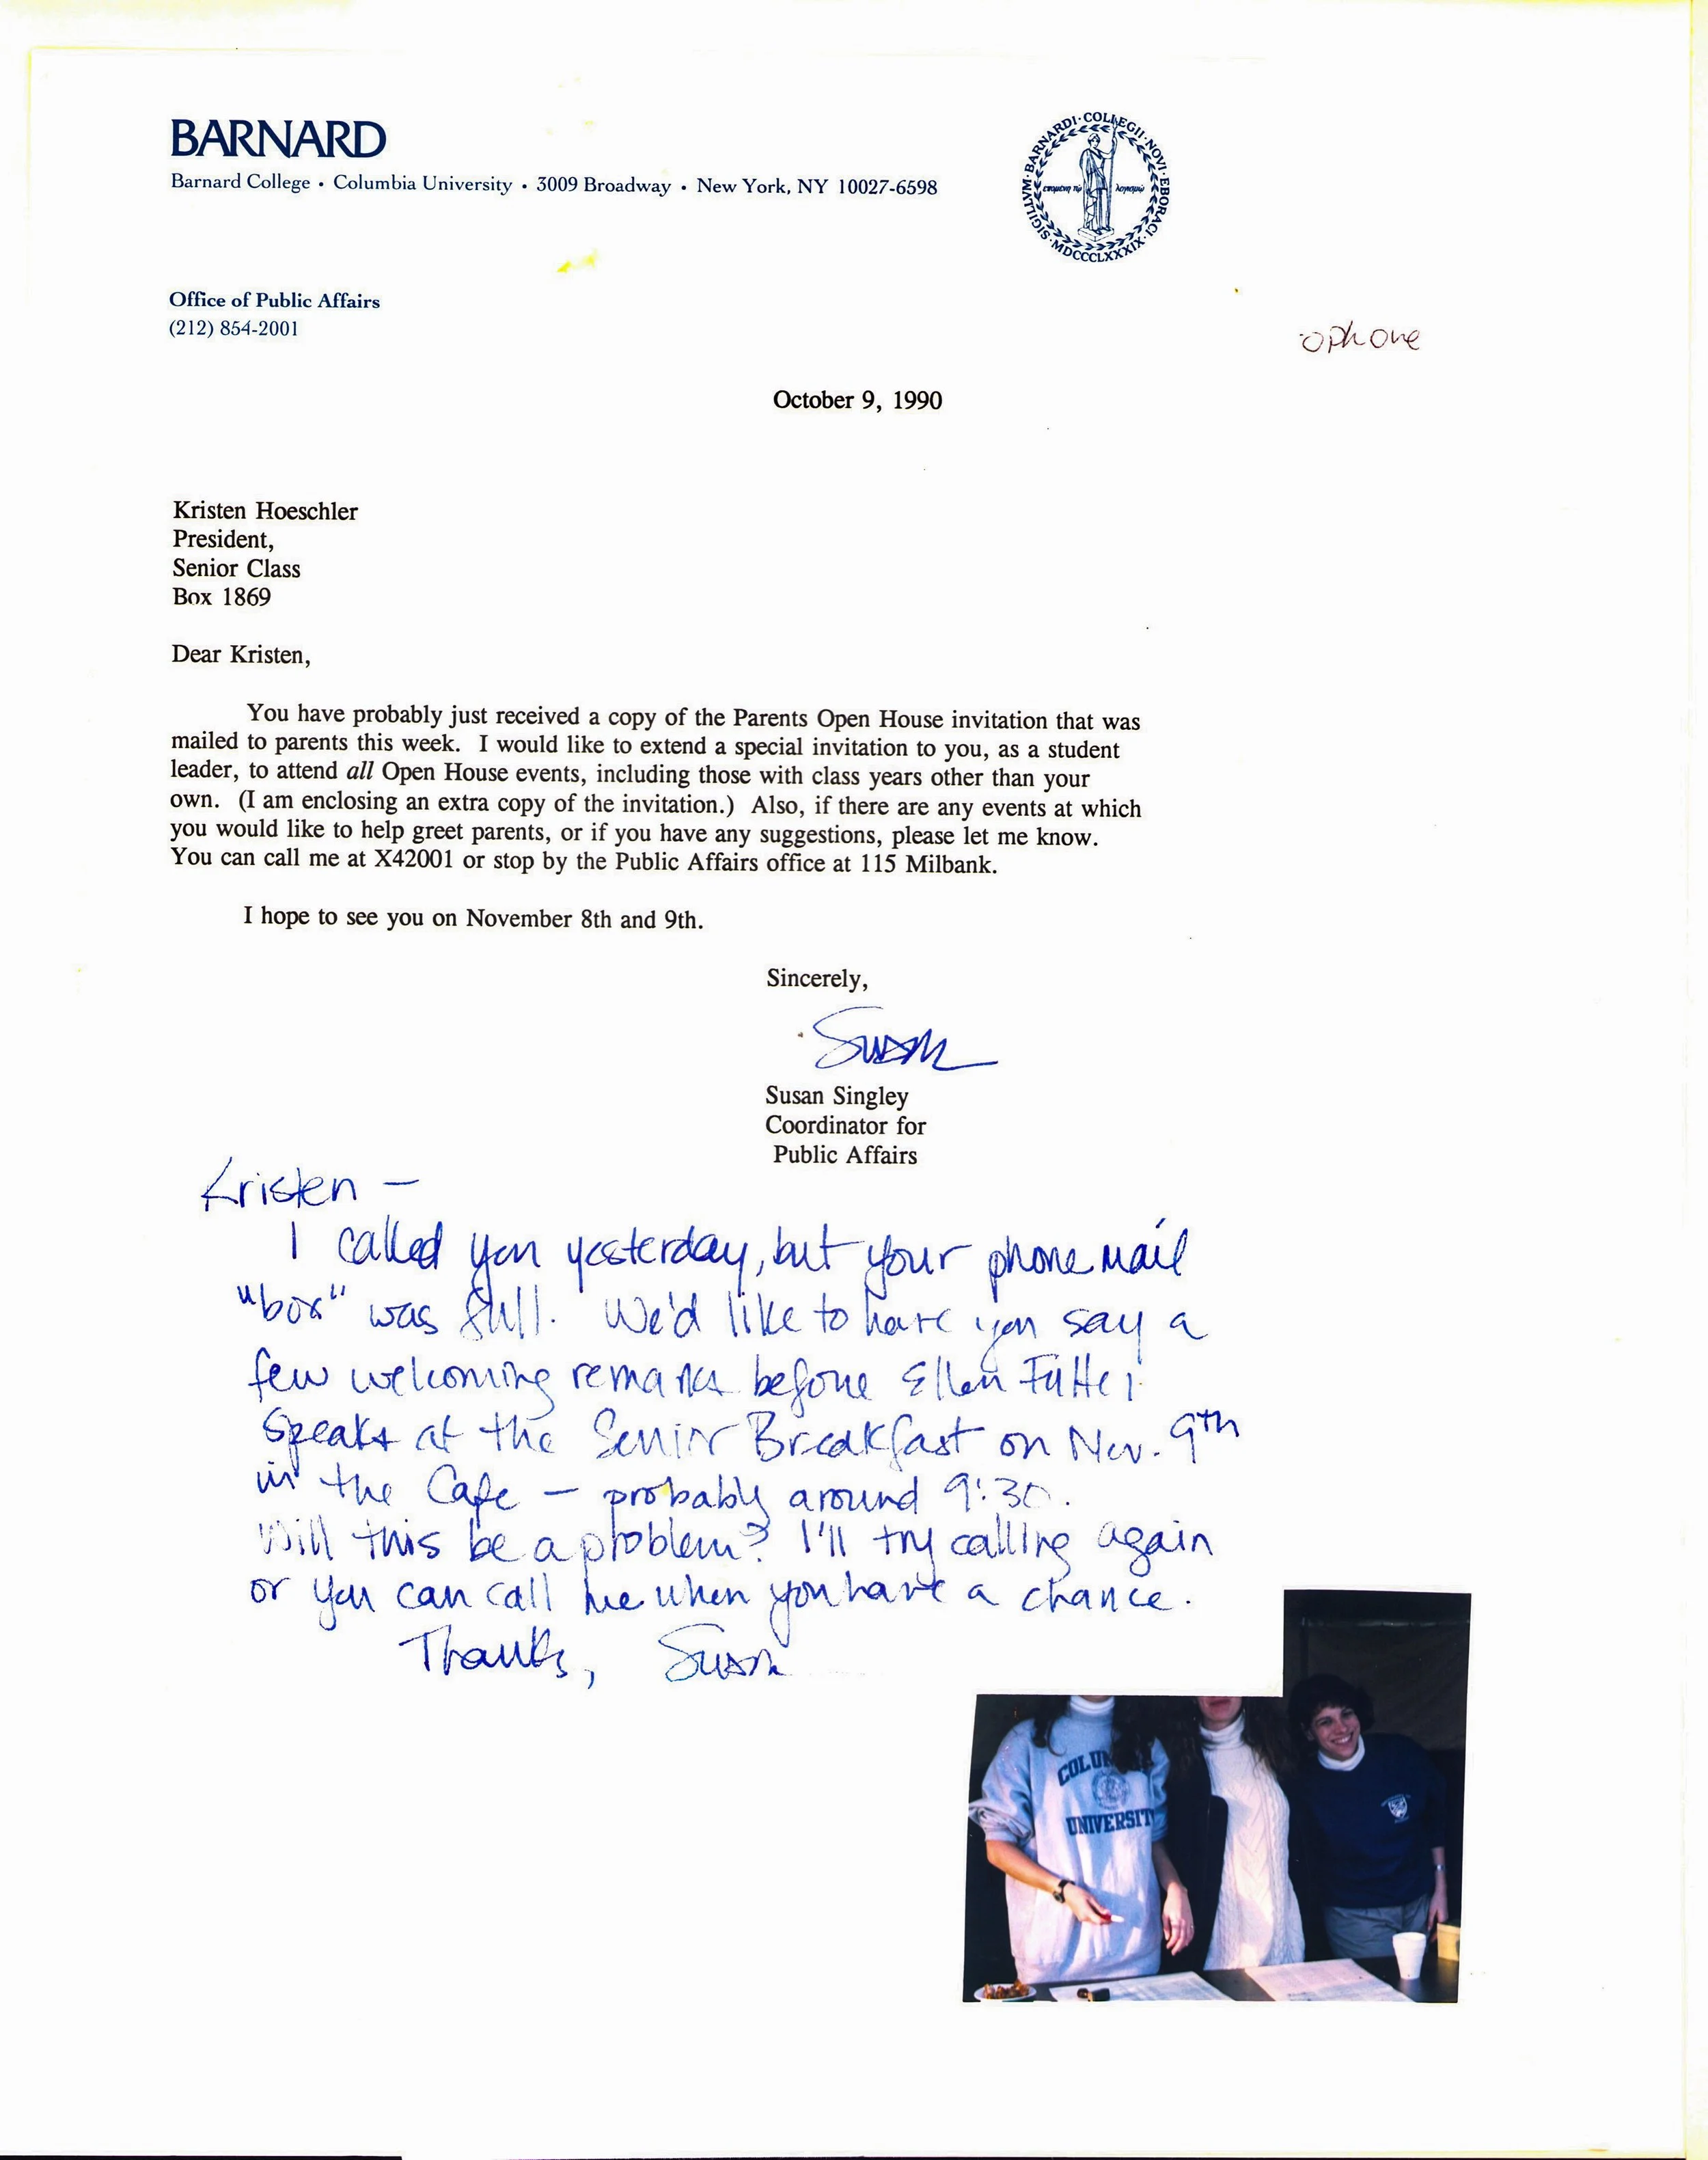 BARNARD
Barnard College • Columbia University • 3009 Broadway • New York, NY 10027-6598
SIGILLVM·BARNARDI·COLLEGII·NOVI·EBORACI
·MDCCCLXXXIX·
Office of Public Affairs
(212) 854-2001
phone
October 9, 1990
Kristen Hoeschler
President,
Senior Class
Box 1869
Dear Kristen,
You have probably just received a copy of the Parents Open House invitation that was
mailed to parents this week. I would like to extend a special invitation to you, as a student
leader, to attend all Open House events, including those with class years other than your
own. (I am enclosing an extra copy of the invitation.) Also, if there are any events at which
you would like to help greet parents, or if you have any suggestions, please let me know.
You can call me at X42001 or stop by the Public Affairs office at 115 Milbank.
I hope to see you on November 8th and 9th.
Sincerely,
Susan
Susan Singley
Coordinator for
Public Affairs
Kristen –
I called you yesterday, but your phone mail
"box" was full. We'd like to have you say a
few welcoming remarks before Ellen Futter
speaks at the Senior Breakfast on Nov. 9th
in the Cafe – probably around 9:30.
Will this be a problem? I'll try calling again
or you can call me when you have a chance.
Thanks, Susan
COLUM
UNIVERSITY